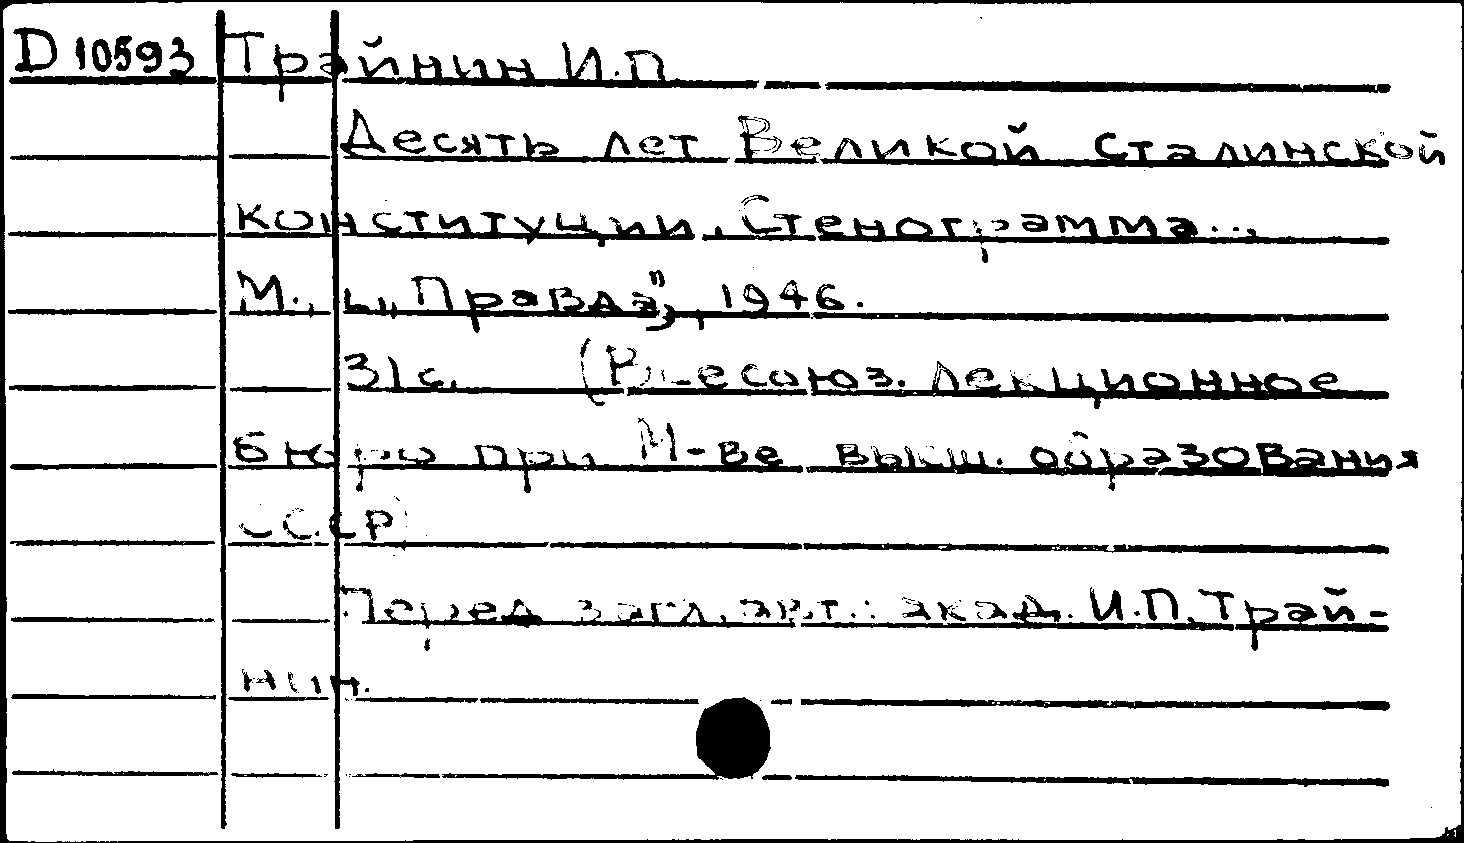 D 10593 Трайнин И.П.
Десять лет Великой Сталинской
конституции. Стенограмма...
М., „Правда", 1946.
31с. (Всесоюз. лекционное
бюро при М-ве высш. образования
СССР)
Перед загл. авт.: акад. И.П. Трай-
нин.